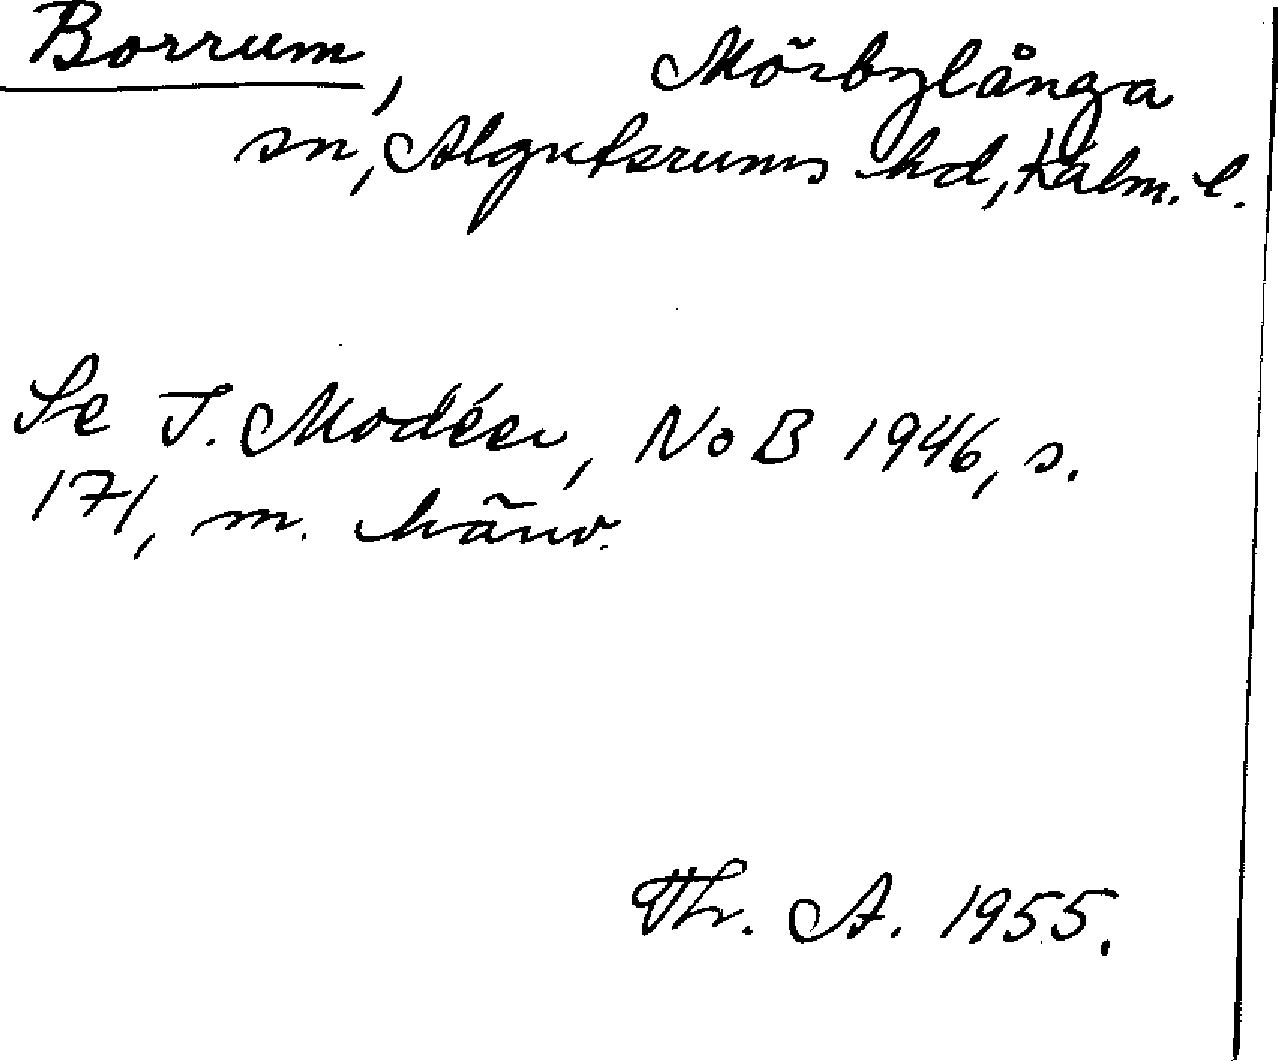 Borrum, Mörbylånga
sn, Algutsrums hd, Kalm. l.
Se I. Modéer, NoB 1946, s.
171, m. hänv.
Th. A. 1955.